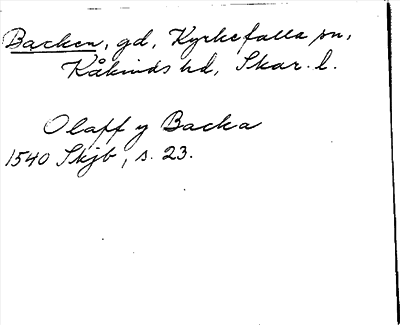 Backen, gd, Kyrkefalla sn,
Kåkinds hd, Skar. l.
Olaff y Backa
1540 Skjb, s. 23.